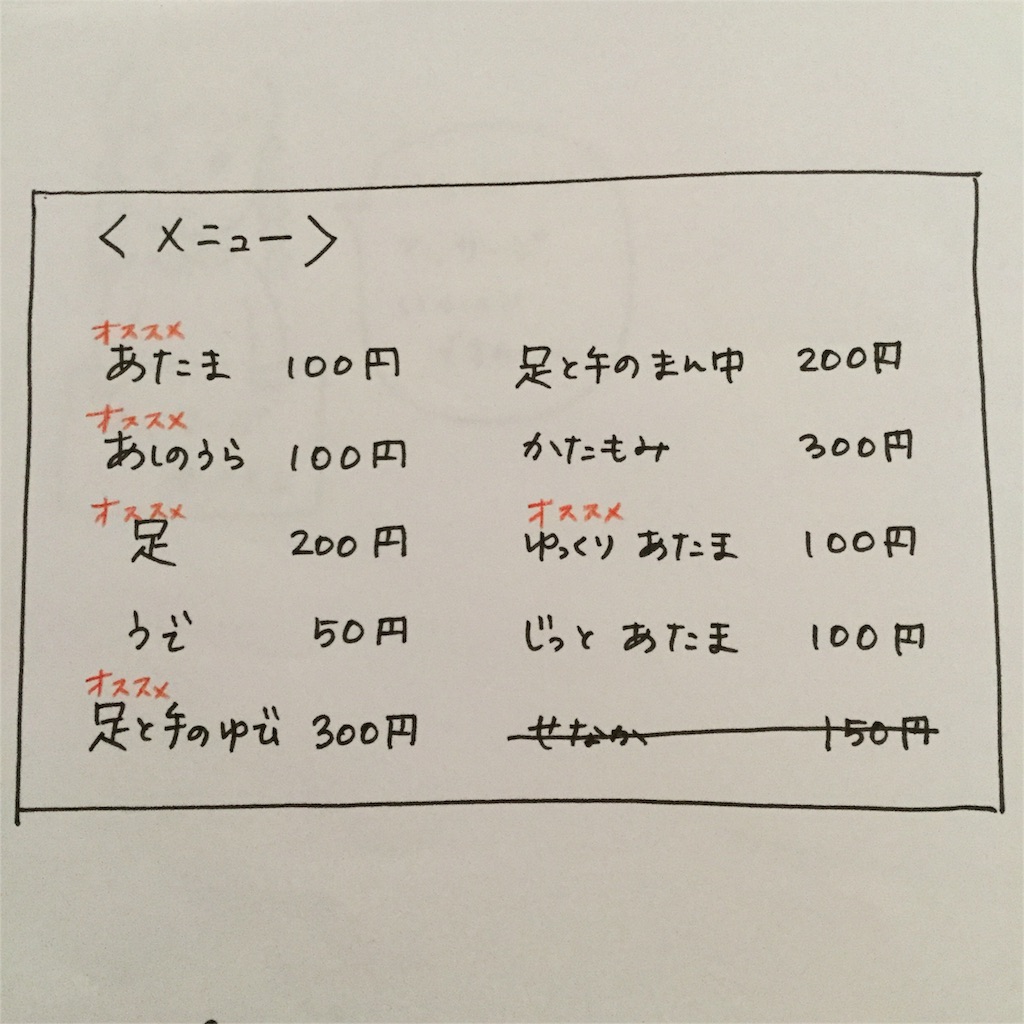 〈メニュー〉
オススメ
あたま 100円
オススメ
あしのうら 100円
オススメ
足 200円
うで 50円
オススメ
足と手のゆび 300円
足と手のまん中 200円
かたもみ 300円
オススメ
ゆっくり あたま 100円
じっと あたま 100円
せなか 150円